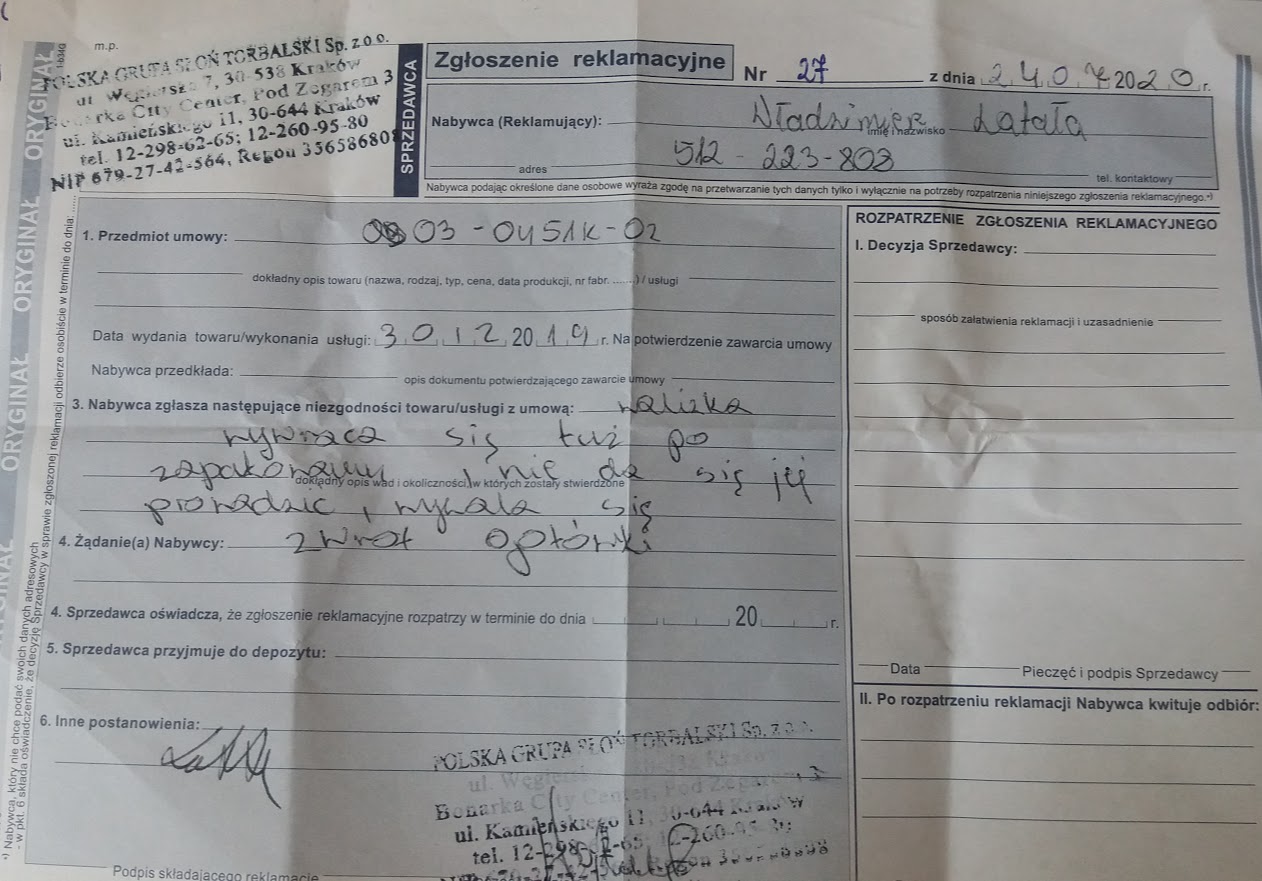 m.p.
POLSKA GRUPA SŁOŃ TORBALSKI Sp. z o.o.
ul. Węgierska 7, 30-538 Kraków
Bonarka City Center, Pod Zegarem 3
ul. Kamieńskiego 11, 30-644 Kraków
tel. 12-298-62-65; 12-260-95-80
NIP 679-27-42-564, Regon 35658680
SPRZEDAWCA
Zgłoszenie reklamacyjne Nr 27 z dnia 24 07 2020 r.
Nabywca (Reklamujący): Władzimierz Latała
imię i nazwisko
512-223-803
adres
tel. kontaktowy
Nabywca podając określone dane osobowe wyraża zgodę na przetwarzanie tych danych tylko i wyłącznie na potrzeby rozpatrzenia niniejszego zgłoszenia reklamacyjnego.*)
1. Przedmiot umowy: 03-0451K-02
dokładny opis towaru (nazwa, rodzaj, typ, cena, data produkcji, nr fabr. .......) / usługi
Data wydania towaru/wykonania usługi: 30 12 2019 r. Na potwierdzenie zawarcia umowy
Nabywca przedkłada:
opis dokumentu potwierdzającego zawarcie umowy
3. Nabywca zgłasza następujące niezgodności towaru/usługi z umową: walizka
wywraca się tuż po
zapakowaniu, nie da się jej
dokładny opis wad i okoliczności, w których zostały stwierdzone
prowadzić,
się
4. Żądanie(a) Nabywcy: zwrot gotówki
4. Sprzedawca oświadcza, że zgłoszenie reklamacyjne rozpatrzy w terminie do dnia 20 r.
5. Sprzedawca przyjmuje do depozytu:
6. Inne postanowienia:
POLSKA GRUPA SŁOŃ TORBALSKI Sp. z o.o.
Bonarka City Center, Pod Zegarem 3
ul. Kamieńskiego 11, 30-644 Kraków
tel. 12-298-62-65
Podpis składającego reklamację
ROZPATRZENIE ZGŁOSZENIA REKLAMACYJNEGO
I. Decyzja Sprzedawcy:
sposób załatwienia reklamacji i uzasadnienie
Data Pieczęć i podpis Sprzedawcy
II. Po rozpatrzeniu reklamacji Nabywca kwituje odbiór:
ORYGINAŁ ORYGINAŁ ORYGINAŁ ORYGINAŁ
*) Nabywca, który nie chce podać swoich danych adresowych
- w pkt. 6 składa oświadczenie, że decyzję Sprzedawcy w sprawie zgłoszonej reklamacji odbierze osobiście w terminie do dnia: